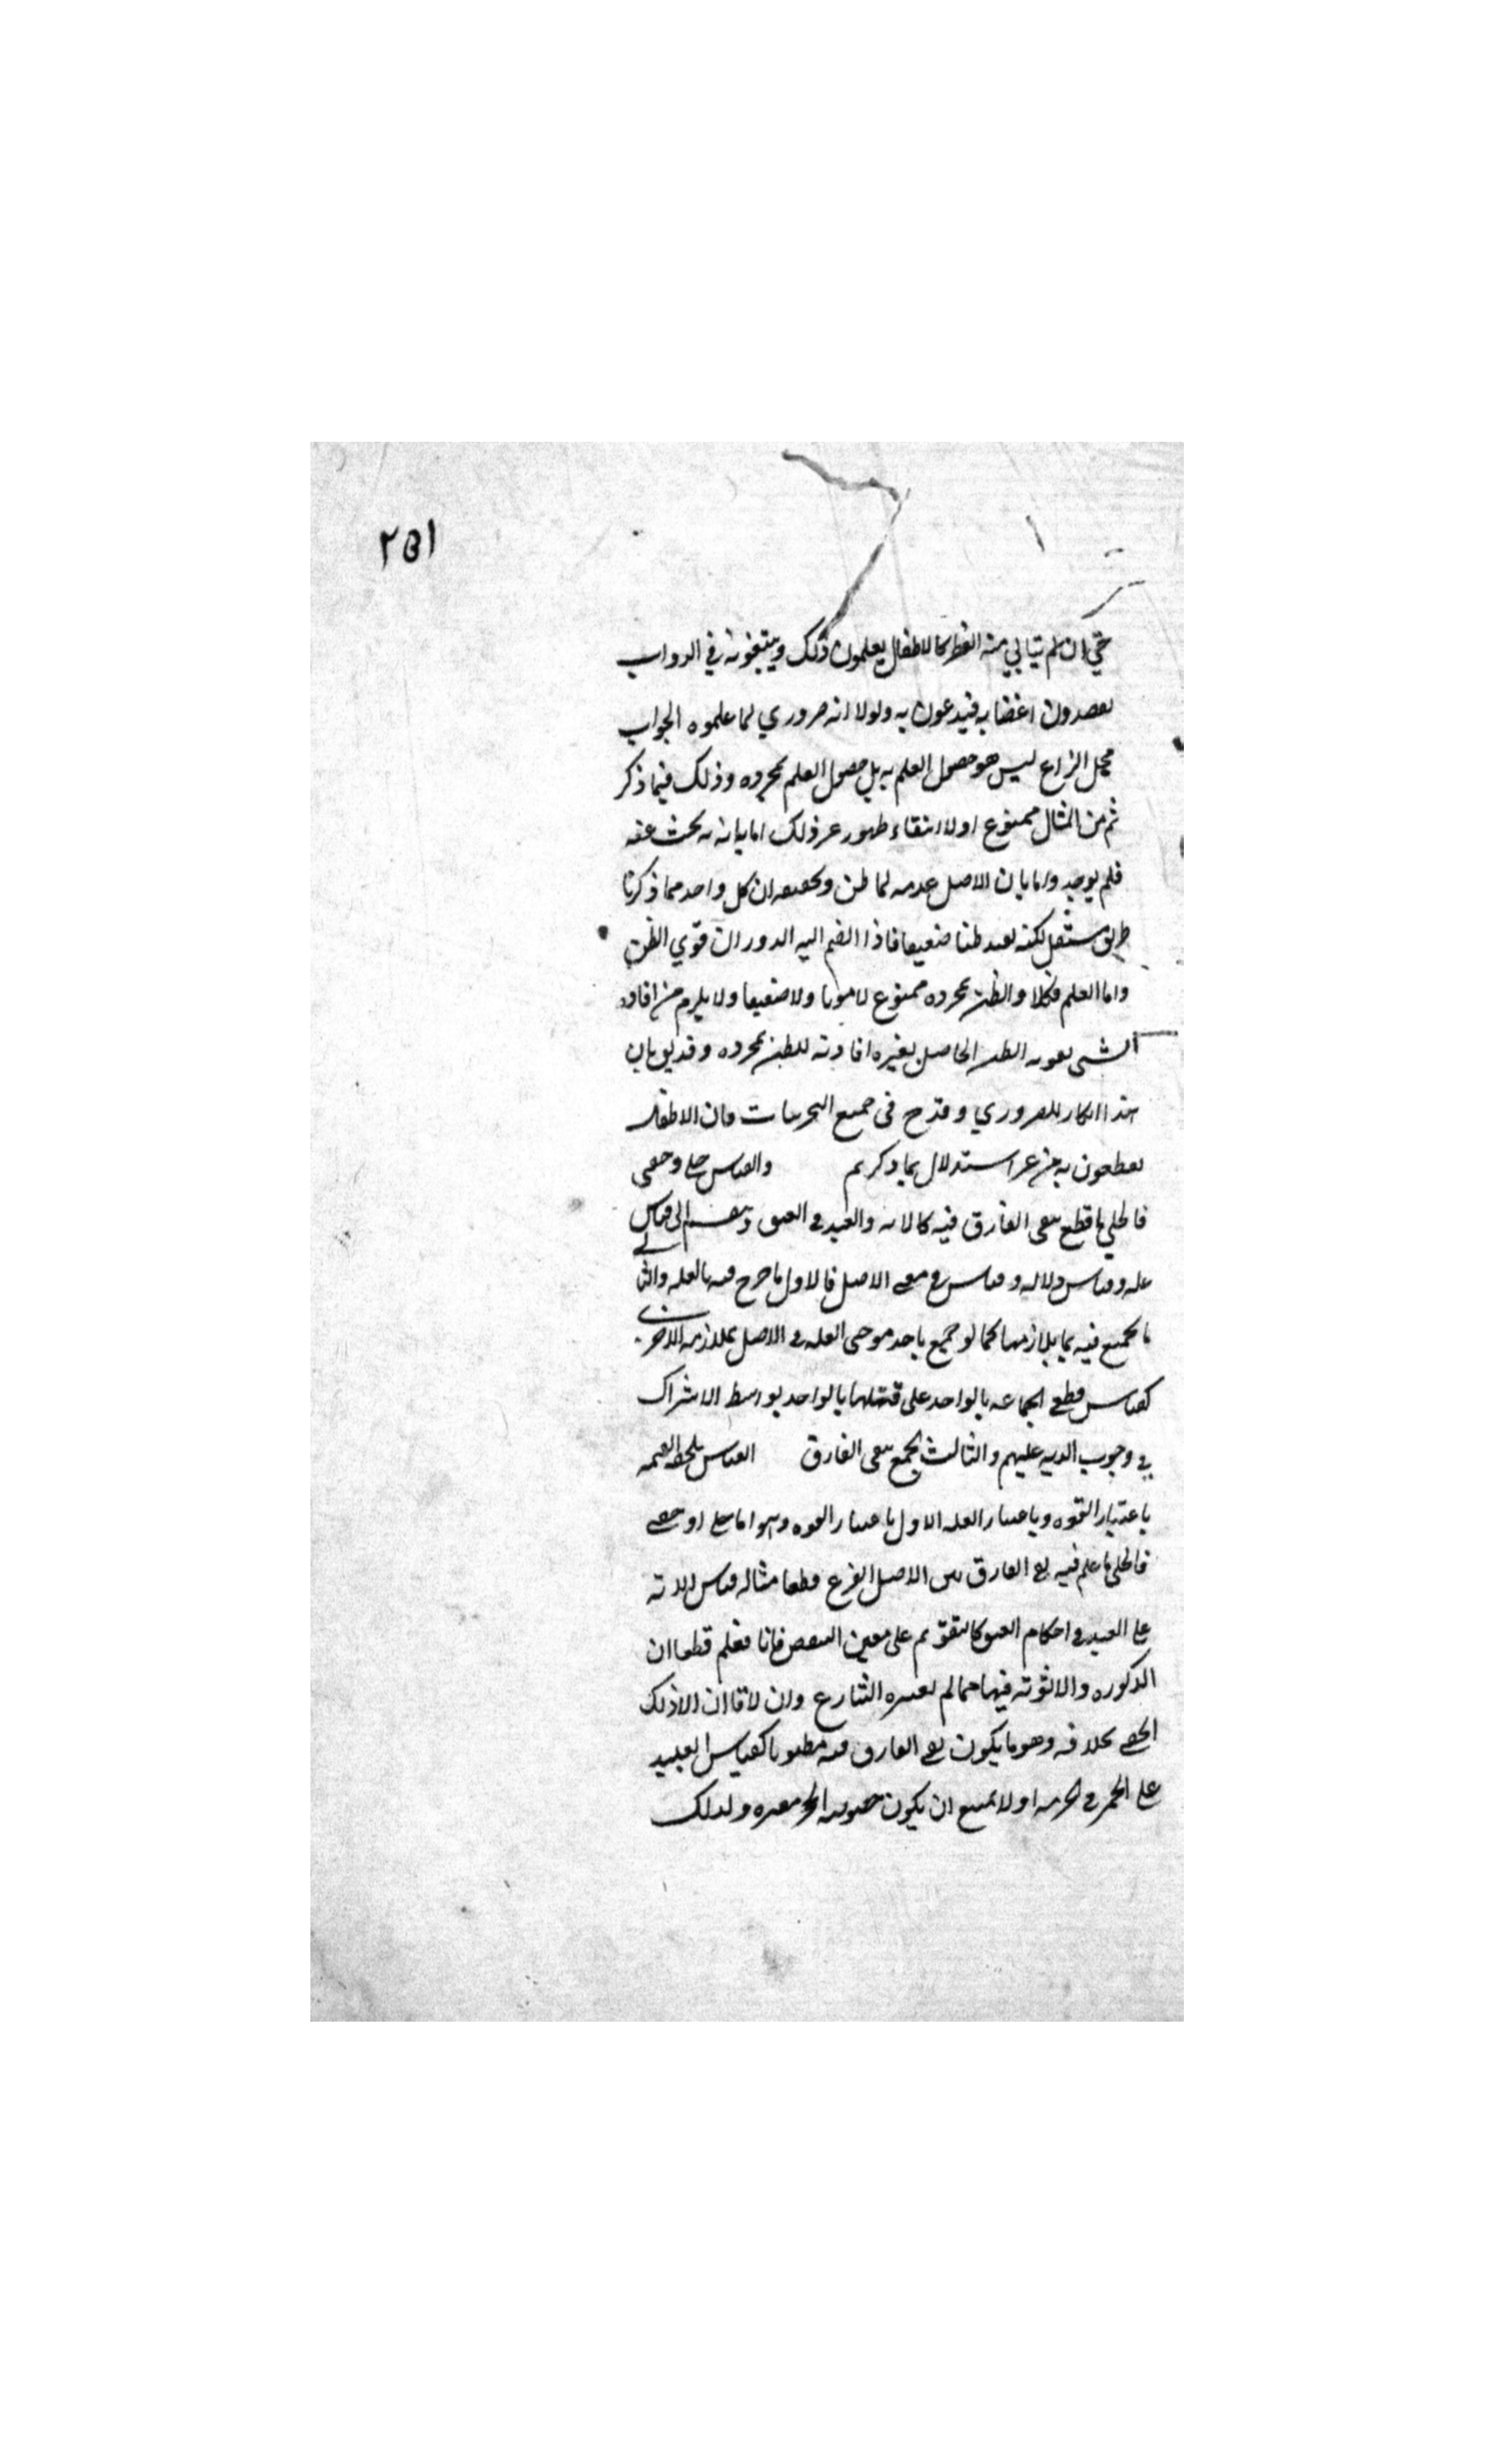 ٢٥١
حتي ان من لم يتاتي منه النظر كالاطفال يعلمون ذلك ويتبعونه في الدروب
يقصدون اغضابه فيدعون به ولولا انه ضروري لما علموه الجواب
محل النزاع ليس هو حصول العلم به بل حصول العلم بمجرده وذلك فيما ذكر
ثم من المثال ممنوع اولا انتفاء ظهور غير ذلك اما بانه بحث عنه
فلم يوجد واما بان الاصل عدمه لما ظن وتحقيقه ان كل واحد مما ذكرنا
طريق مستقل لكنه يفيد ظنا ضعيفا فاذا انضم اليه الدوران قوي الظن
واما العلم فكلا والظن بمجرده ممنوع لا قويا ولا ضعيفا ولا يلزم من افادة
الشي تقويه الظن الحاصل بغيره افادته للظن بمجرده وقد يق بان
هذا انكار للضروري وقدح في جميع التجربيات فان الاطفال
يقطعون به من غير استدلال بما ذكرتم والقياس جلي وخفي
فالجلي ما قطع بنفي الفارق فيه كالامه والعبد في العتق وينقسم الى قياس
عله وقياس دلاله وقياس في معنى الاصل فالاول ما صرح فيه بالعله والثاني
ما يجمع فيه بما يلازمها كما لو جمع باحد موجبي العله في الاصل لملازمه الاخر
كقياس قطع الجماعه بالواحد على قتلها بالواحد بواسطه الاشتراك
في وجوب الديه عليهم والثالث الجمع بنفي الفارق القياس يلحقه القسمه
باعتبار القوه وباعتبار العله الاول باعتبار القوه وهو اما جلي او خفي
فالجلي ما علم فيه نفي الفارق بين الاصل والفرع قطعا مثاله قياس الامه
على العبد في احكام العتق كالتقويم على معتق البعض فانا نعلم قطعا ان
الذكوره والانوثه فيهما مما لم يعتبره الشارع وان لا فارق الا ذلك
الخفي بخلافه وهو ما يكون نفي الفارق فيه مظنونا كقياس النبيذ
على الخمر في الحرمه اولا يمتنع ان يكون خصوصيه الخمر معتبره ولذلك